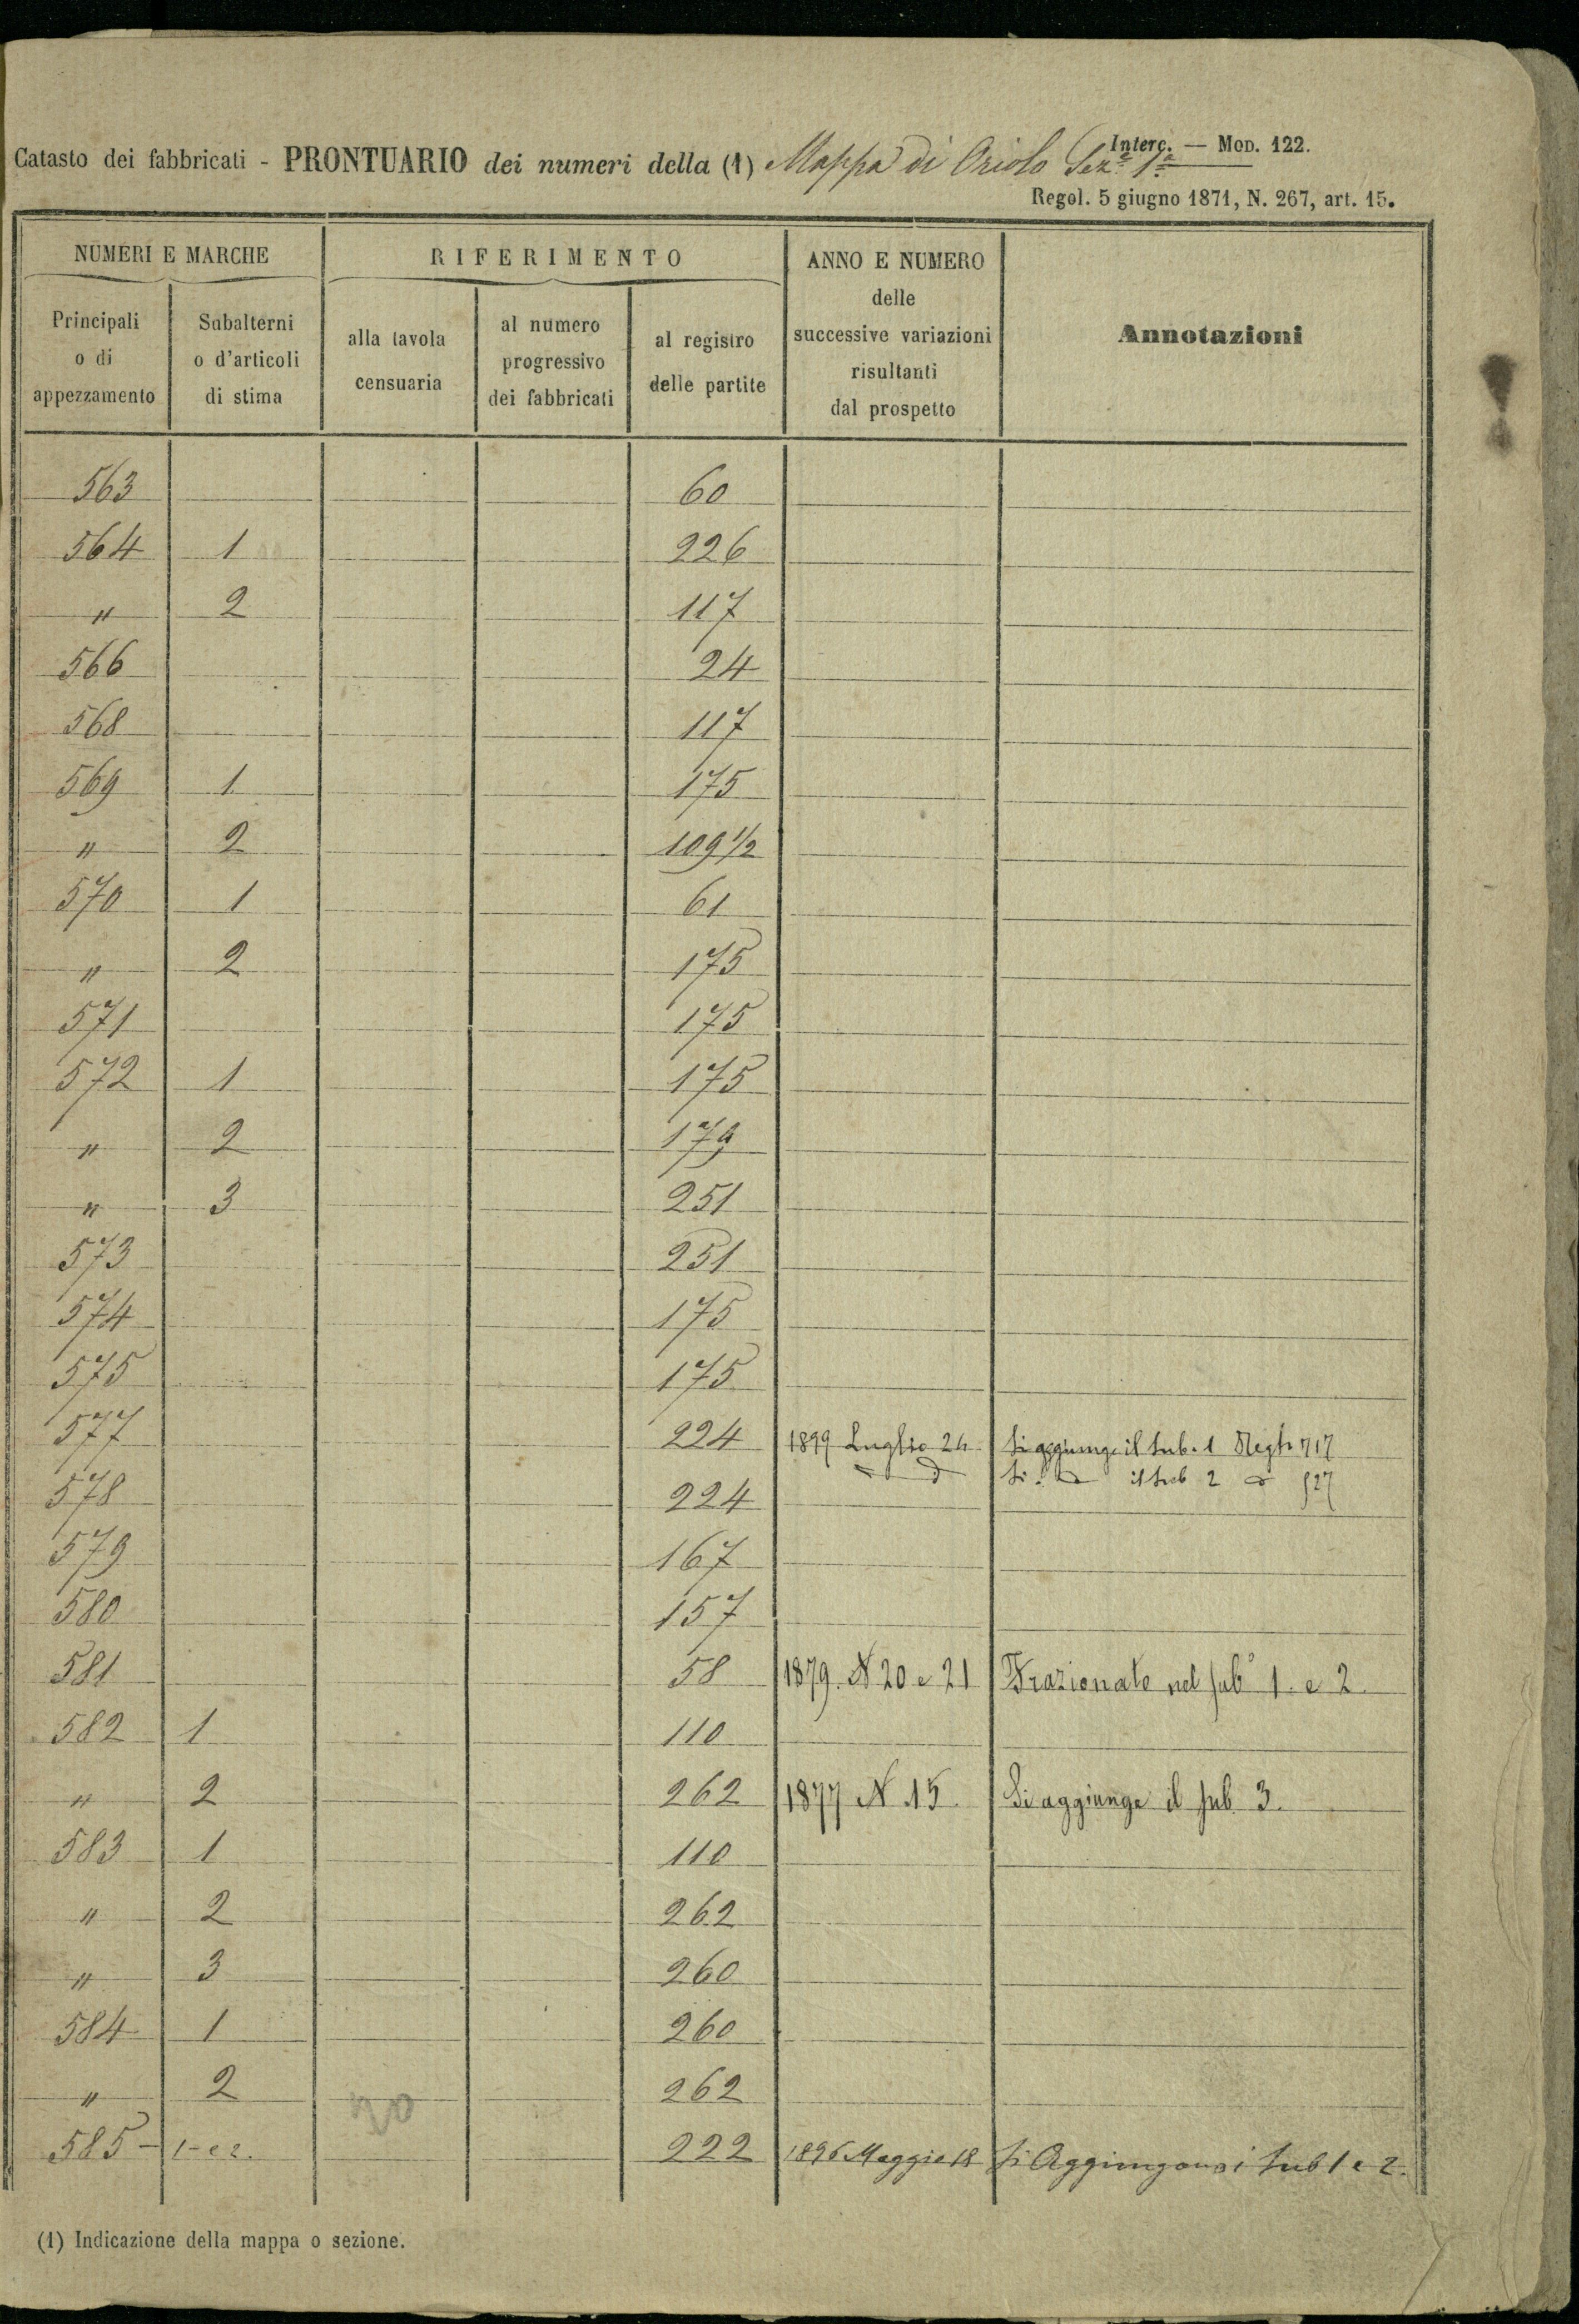 Interc. — Mod. 122.
Catasto dei fabbricati - PRONTUARIO dei numeri della (1) Mappa di Oriolo Sezᵉ 1ᵃ
Regol. 5 giugno 1871, N. 267, art. 15.
NUMERI E MARCHE RIFERIMENTO ANNO E NUMERO delle successive variazioni risultanti dal prospetto Annotazioni
Principali o di appezzamento Subalterni o d'articoli di stima alla tavola censuaria al numero progressivo dei fabbricati al registro delle partite
563 60
564 1 226
" 2 117
566 24
568 117
569 1 175
" 2 109 1/2
570 1 61
" 2 175
571 175
572 1 175
" 2 179
" 3 251
573 251
574 175
575 175
577 224 1899 Luglio 24 Si aggiunge il sub. 1 717
578 224 Si il sub 2 527
579 167
580 157
581 58 1879. N 20 e 21 Frazionato nel sub° 1. e 2.
582 1 110
" 2 262 1877 N. 15. Si aggiunge il sub 3.
583 1 110
" 2 262
" 3 260
584 1 260
" 2 262
20
585 - 1- e 2. 222 1896 Maggio 18 Si Aggiungono i sub 1 e 2.
(1) Indicazione della mappa o sezione.